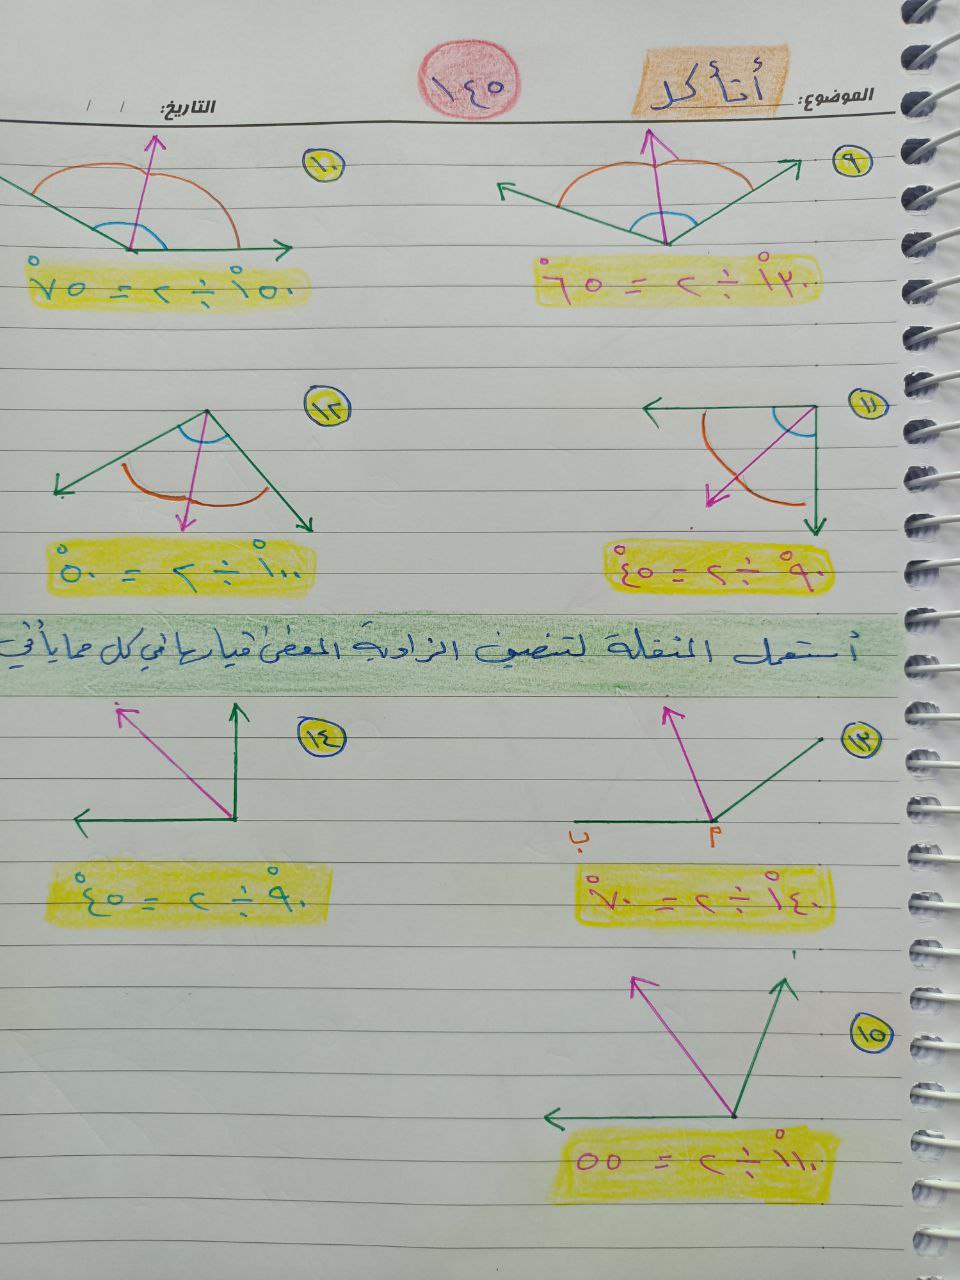 الموضوع: أتأكد ١٤٥ التاريخ: / /
٩ ١٠
١٣٠° ÷ ٢ = ٦٥° ١٥٠° ÷ ٢ = ٧٥°
١١ ١٢
٩٠° ÷ ٢ = ٤٥° ١٠٠° ÷ ٢ = ٥٠°
أستعمل المنقلة لتنصيف الزاوية المعطى قياسها في كل مما يأتي
١٣ ١٤
م ب
١٤٠° ÷ ٢ = ٧٠° ٩٠° ÷ ٢ = ٤٥°
١٥
١١٠° ÷ ٢ = ٥٥